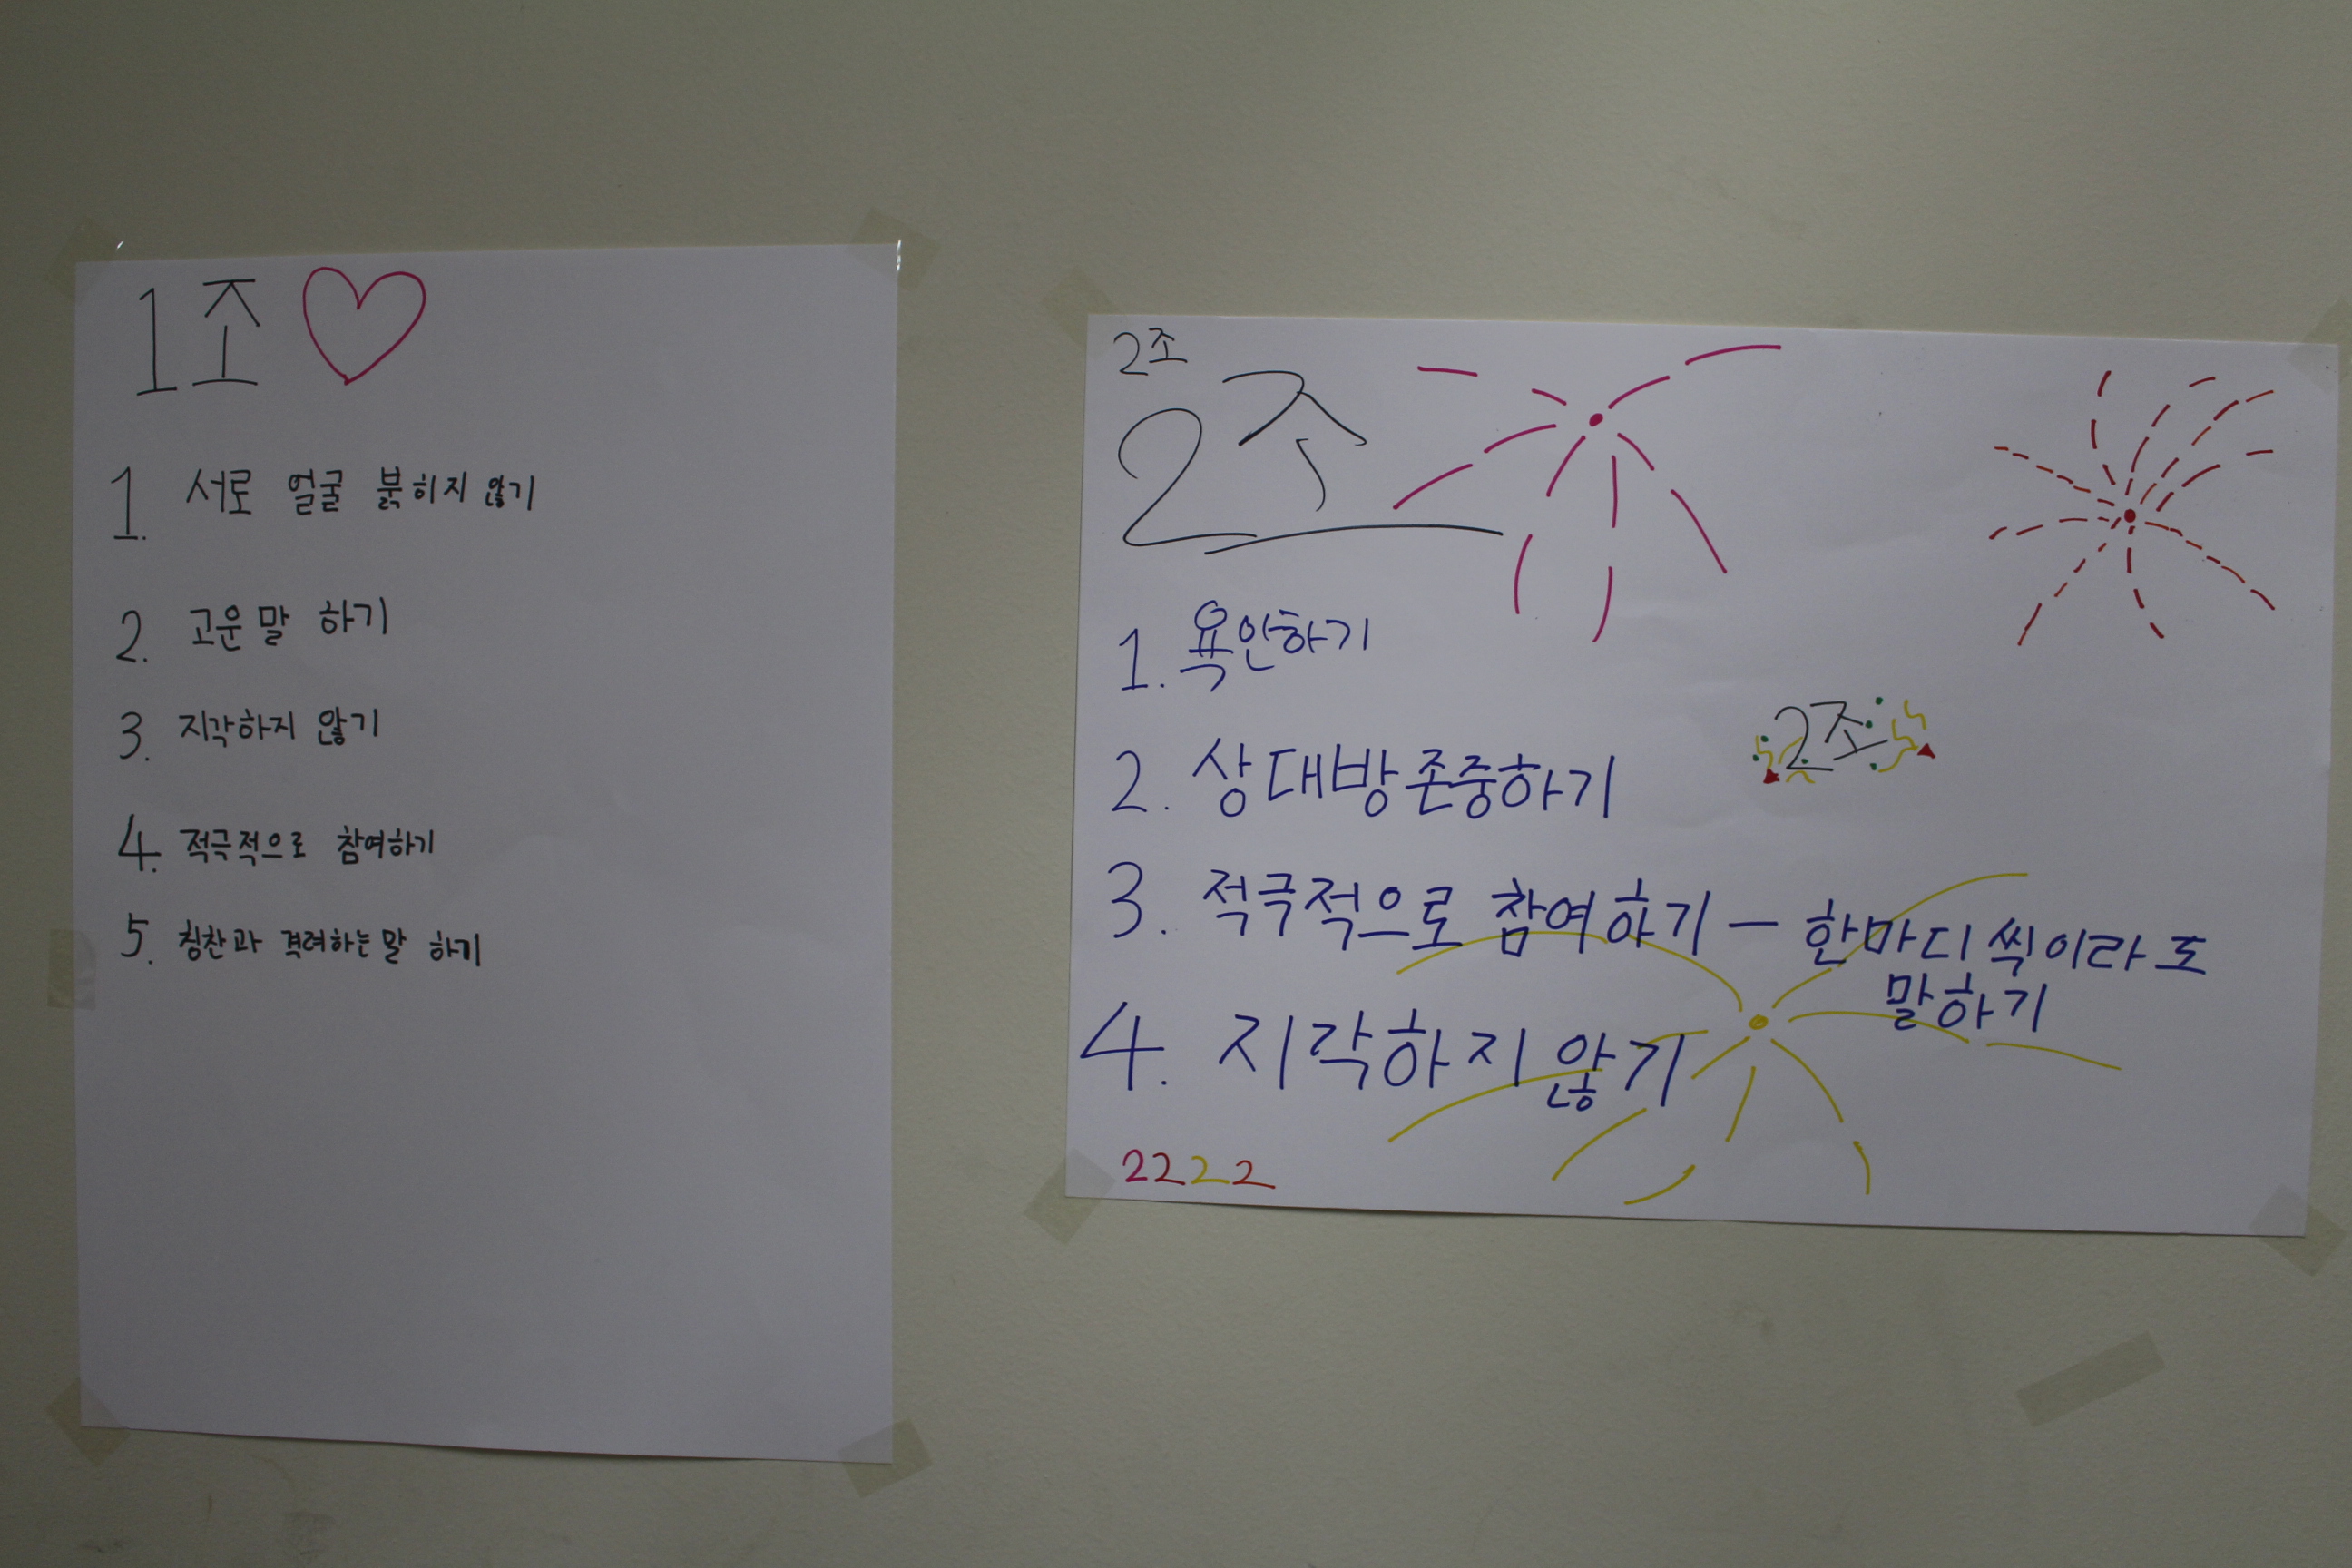 1조
1. 서로 얼굴 붉히지 않기
2. 고운말 하기
3. 지각하지 않기
4. 적극적으로 참여하기
5. 칭찬과 격려하는말 하기
2조
2조
1. 욕안하기
2. 상대방존중하기
2조
3. 적극적으로 참여하기 - 한마디씩이라도
말하기
4. 지각하지 않기
2222